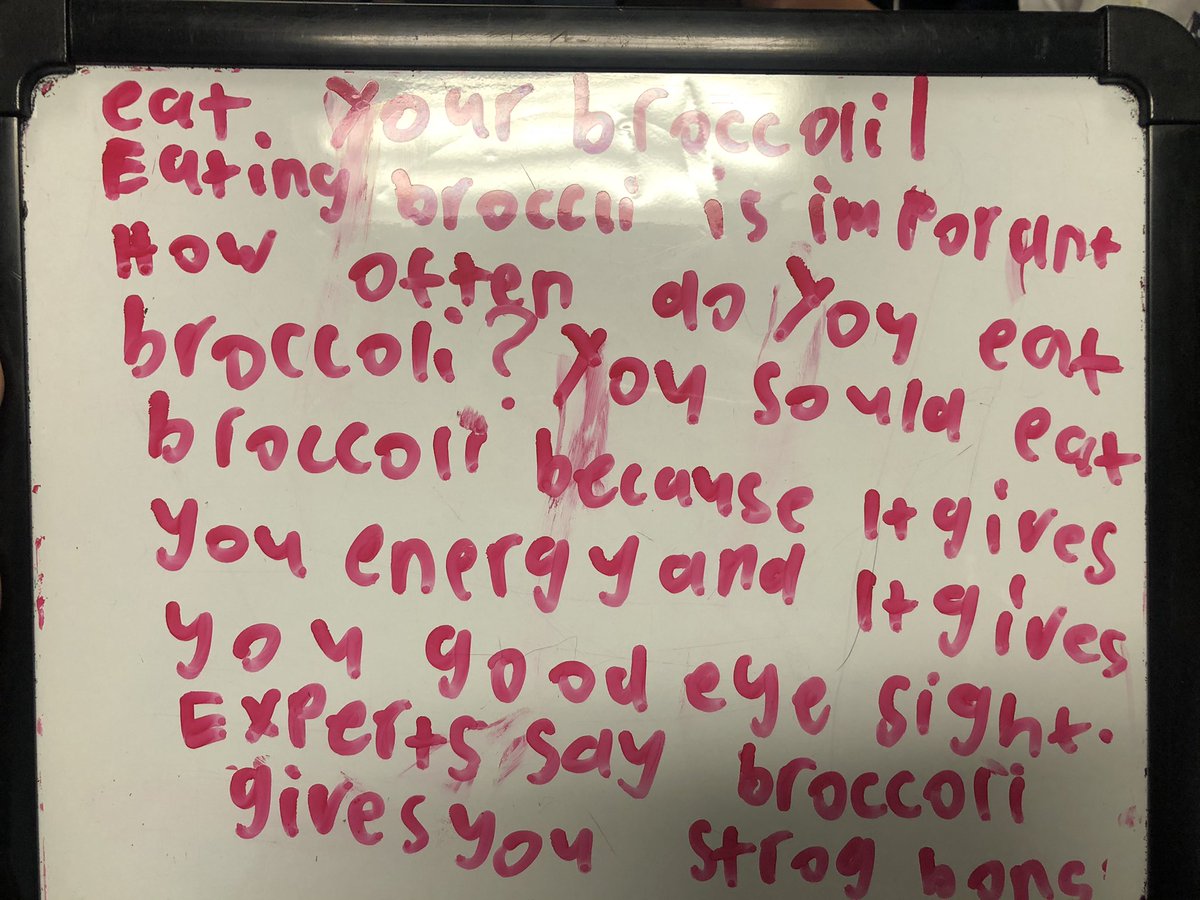 eat. Your broccoli!
Eating broccli is imporant
How often do you eat
broccoli? You sould eat
broccoli because It gives
you energy and It gives
you good eye sight.
Experts say broccori
gives you strog bons